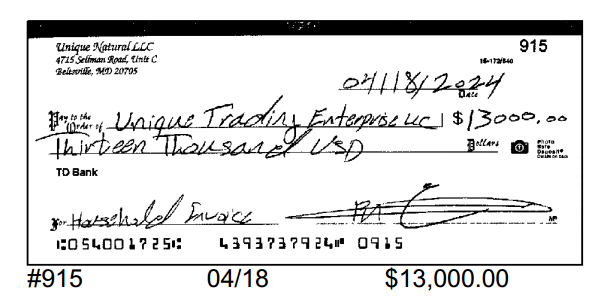 Unique Natural LLC 915
4715 Sellman Road, Unit C 15-172/540
Beltsville, MD 20705
04/18/2024
Date
Pay to the
Order of Unique Trading Enterprise LLC $13000.00
Thirteen Thousand USD Dollars Photo Safe Deposit
TD Bank
For Household Invoice MP
⑆054001725⑆ 4393737924⑈ 0915
#915 04/18 $13,000.00